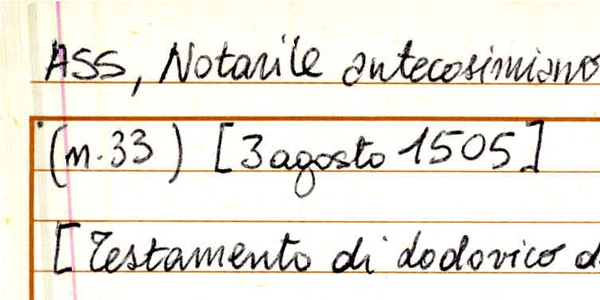 ASS, Notarile antecosimiano
(n. 33) [3 agosto 1505]
[Testamento di Lodovico d